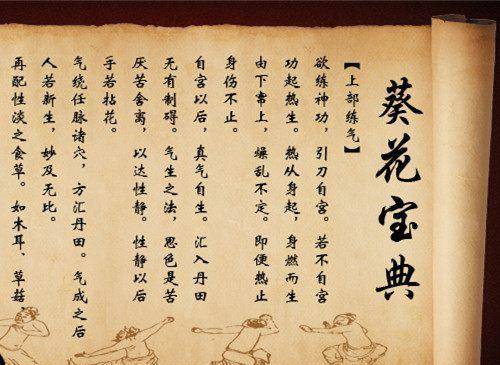 葵花宝典
【上部练气】
欲练神功，引刀自宫。若不自宫
功起热生。热从身起，身燃而生
由下窜上，燥乱不定。即便热止
身伤不止。
自宫以后，真气自生。汇入丹田
无有制碍。气生之法，思色是苦
厌苦舍离，以达性静。性静以后
手若拈花。
气绕任脉诸穴，方汇丹田。气成之后
人若新生，妙及无比。
再配性淡之食草。如木耳、草菇